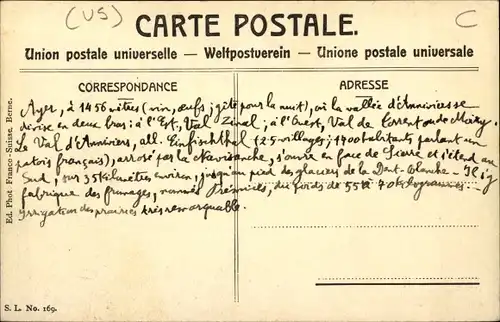 (VS)
C
CARTE POSTALE.
Union postale universelle — Weltpostverein — Unione postale universale
CORRESPONDANCE
ADRESSE
Ayer, à 1456 mètres (vin, œufs; gîte pour la nuit), où la vallée d'Anniviers se
divise en deux bras: à l'Est, Val Zinal; à l'Ouest, Val de Torrent ou de Moiry.
Le Val d'Anniviers, all. Einfischthal (25 villages; 1900 habitants parlant un
patois français), arrosé par la Navisanche, s'ouvre en face de Sierre et s'étend au
Sud, sur 35 kilomètres environ, jusqu'au pied des glaciers de la Dent-Blanche - Il y
fabrique des fromages, nommés du poids de 5 à 70 kilogrammes
irrigation des prairies très remarquable.
Ed. Phot. Franco-Suisse, Berne.
S. L. No. 169.